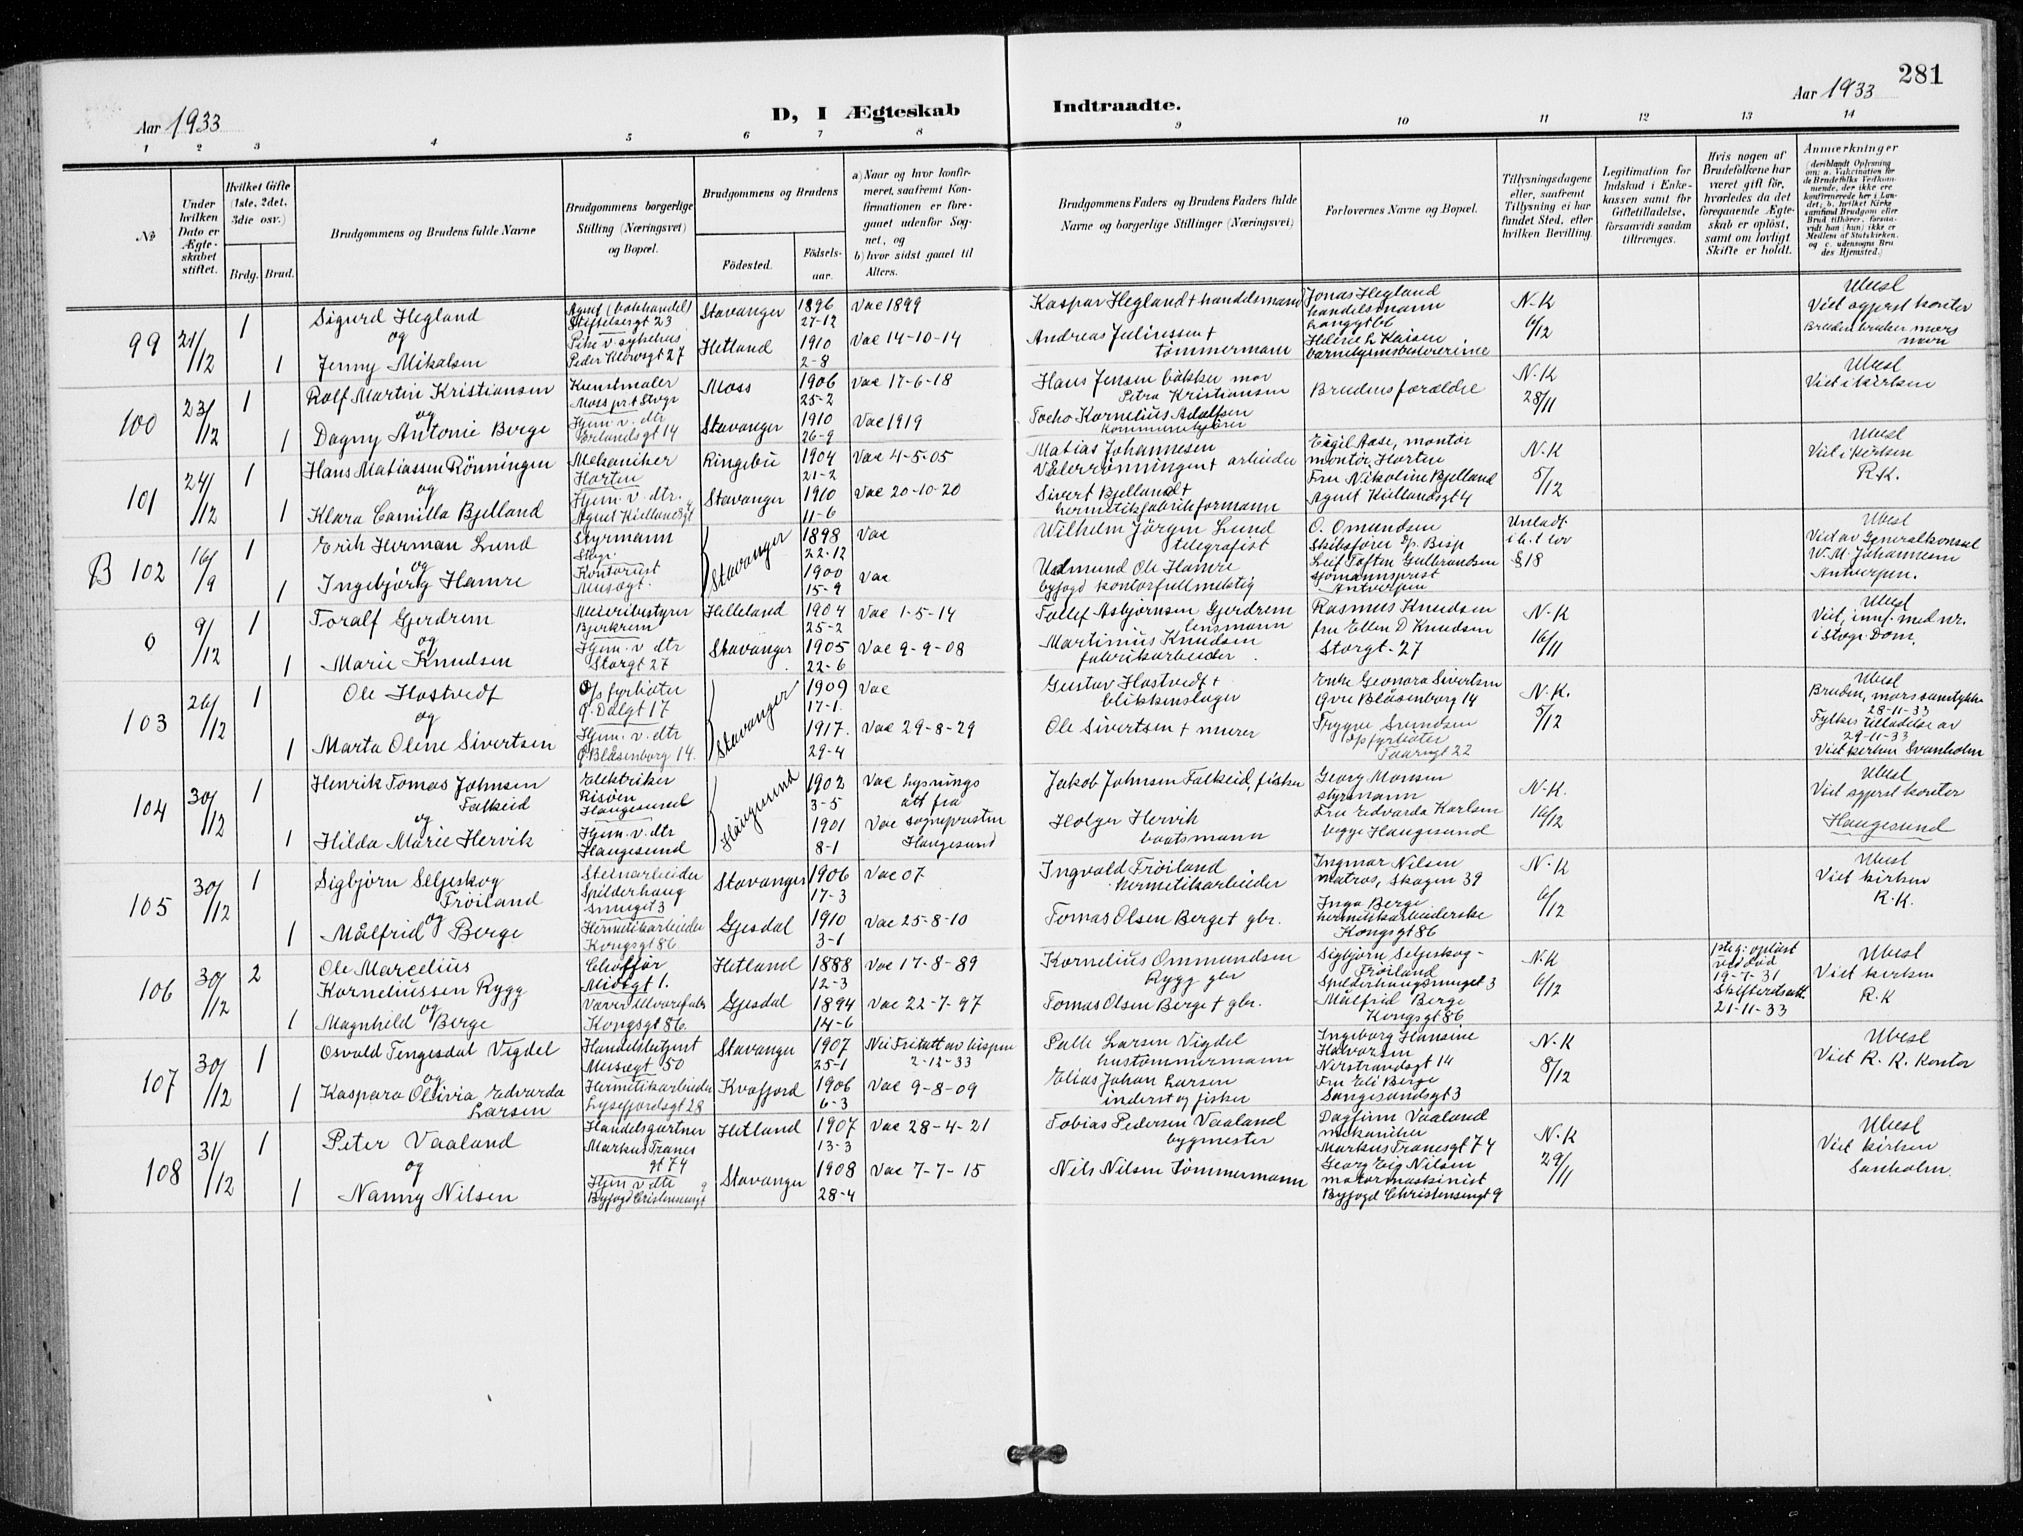 281
Aar 1933
D, I Ægteskab
Indtraadte.
Aar 1933
1 2 3 4 5 6 7 8 9 10 11 12 13 14
№
Under hvilken Dato er Ægteskabet stiftet.
Hvilket Gifte (1ste, 2det, 3die osv.)
Brdg. Brud.
Brudgommens og Brudens fulde Navne
Brudgommens borgerlige Stilling (Næringsvei) og Bopæl.
Brudgommens og Brudens
Födested.
Födselsaar.
a) Naar og hvor konfirmeret, saafremt Konfirmationen er foregaaet udenfor Sognet, og
b) hvor sidst gaaet til Alters.
Brudgommens Faders og Brudens Faders fulde Navne og borgerlige Stillinger (Næringsvei)
Forlovernes Navne og Bopæl.
Tillysningsdagene eller, saafremt Tillysning ei har fundet Sted, efter hvilken Bevilling.
Legitimation for Indskud i Enkekassen samt for Giftetilladelse, forsaavidt saadan tiltrænges.
Hvis nogen af Brudefolkene har været gift för, hvorledes da det foregaaende Ægteskab er oplöst, samt om lovligt Skifte er holdt.
Anmærkninger
(deriblandt Oplysning om: a. Vakcination for de Brudefolks Vedkommende, der ikke ere konfirmerede her i Landet; b. hvilket Kirkesamfund Brudgom eller Brud tilhörer, forsaavidt han (hun) ikke er Medlem af Statskirken, og c. udensogns Brudes Hjemsted.)
99
21/12
1
Sigurd Hegland
og
1
Jenny Mikalsen
Agent (bokhandel)
Stiftelsesgt 23
Pike v. sykehus
Peder Klowsgt 27
Stavanger
Hetland
1896
27-12
1910
2-8
Vac 1899
Vac 14-10-14
Kaspar Hegland + handelsmann
Andreas Julinssen +
tømmermann
Jonas Hegland
handelsmann
Langgt 66
Helene L Kaisen
barnehjemsbestyrerinne
N.K
6/12
Ubesl
Viet sgprst kontor
Bruden bruker mors
navn
100
23/12
1
Rolf Martin Kristiansen
og
1
Dagny Antonie Berge
Kunstmaler
Moss prt Stvgr
Hjem. v. dtr
Erlandsgt 14
Moss
Stavanger
1906
25-2
1910
26-9
Vac 17-6-18
Vac 1919
Hans Jensen bakke mor
Petra Kristiansen
Tocho Kornelius Adolfsen
Brudens forældre
N.K
28/11
Ubesl
Viet i kirken
101
24/12
1
Hans Matiassen Rönningen
og
1
Klara Camilla Bjelland
Mekaniker
Horten
Hjem. v. dtr.
Agnet Kiellandsgt 4
Ringebu
Stavanger
1904
21-2
1910
11-6
Vac 4-5-05
Vac 20-10-20
Matias Johannesen
Vælerrønningen + arbeider
Sivert Bjelland +
hermetikfabrikformann
Eigil Aase, montör
montör Horten
Fru Nikoline Bjelland
Agnet Kiellandsgt 4
N.K
5/12
Ubesl
Viet i kirken
R.K.
B 102
16/9
1
Erik Herman Lund
og
1
Ingebjörg Hamre
Styrmann
Stvgr.
Kontorist
Musegt.
Stavanger
1898
22-12
1900
15-9
Vac
Vac
Wilhelm Jörgen Lund
telegrafist
Udmund Ole Hamre
byfogd kontorfullmektig
O. Omundsen
Skibsfører S/s Bisp
Leif Toften Gulbrandsen
sjömannsprest
Antwerpen
Unladt
i h. t lov
§ 18
Ubesl
Viet av Generalkonsul
W. M. Johannesen
Antwerpen.
0
9/12
1
Toralf Gjerdrem
og
1
Marie Knudsen
Meieribestyrer
Bjerkrem
Hjem. v dtr
Storgt 27
Helleland
Stavanger
1904
25-2
1905
22-6
Vac 1-5-14
Vac 9-9-08
Tollef Asbjörnsen Gjerdrem
lensmann
Martinius Knudsen
fabrikarbeider
Rasmus Knudsen
fru Ellen D Knudsen
Storgt. 27
N.K
16/11
Ubesl
Viet, innf. med nr.
i Stvgr. Dom.
103
26/12
1
Ole Hostvedt
og
1
Marta Oline Sivertsen
D/s fyrböter
Ø. Dalgt 17
Hjem. v. dtr
Ø. Blåsenborg 14.
Stavanger
1909
17-1.
1917.
29-4
Vac
Vac 29-8-29
Gustav Hostvedt +
blikkenslager
Ole Sivertsen + murer
Enke Geonora Sivertsen
Øvre Blåsenborg 14
Trygve Svendsen
D/s fyrböter
Taarngt 22
N.K.
5/12
Ubesl
Bruden, mors samtykke
28-11-33
Fylkes tilladelse av
29-11-33
Viet kirken Svanholm
104
30/12
1
Henrik Tomas Johnsen
Falkeid
og
1
Hilda Marie Hervik
Elektriker
Risöen
Haugesund
Hjem. v. dtr
Haugesund
Haugesund
1902
3-5
1901
8-1
Vac lysnings
att fra
Vac sognepresten
Haugesund
Jakob Johnsen Falkeid, fisker
Holger Hervik
baatsmann
Georg Monsen
styrmann
Fru Edvarda Karlsen
begge Haugesund
N.K.
16/12
Ubesl
Viet sgprst kontor
Haugesund
105
30/12
1
Sigbjörn Seljeskog
Tröiland
og
1
Målfrid Berge
Steinarbeider
Spilderhaug
smuget 3
Hermetikarbeider
Kongsgt 86
Stavanger
Gjesdal
1906
17-3
1910
3-1
Vac 07
Vac 25-8-10
Ingvald Tröiland
hermetikarbeider
Tomas Olsen Berge + gbr.
Ingmar Nilsen
matros, Skagen 39
Inga Berge
hermetikarbeiderske
Kongsgt 86
N.K
6/12
Ubesl
Viet kirken
R.K.
106
30/12
2
Ole Marcelius
Korneliussen Rygg
og
1
Magnhild Berge
Chofför
Midtgt 1.
Kongsgt 86.
Hetland
Gjesdal
1888
12-3
1894
14-6
Vac 17-8-89
Vac 22-7-97
Kornelius Ommundsen
Rygg gbr
Tomas Olsen Berge + gbr.
Sigbjörn Seljeskog-
Tröiland
Spilderhaugsmuget 3
Målfrid Berge
Kongsgt 86
N.K
6/12
1steg: oplöst
ved död
19-7-31
Skifteretsatt.
21-11-33
Ubesl
Viet kirken
R.K
107
30/12
1
Osvald Tengesdal Vigdel
og
1
Kaspara Ollivia Edvarda
Larsen
Handelsbetjent
Musegt 50
Hermetikarbeider
Lysefjordsgt 28
Stavanger
Kvæfjord
1907
25-1
1906
6-3
Nei Fritatt av bispen
2-12-33
Vac 9-8-09
Palle Larsen Vigdel
hustømmermann
Elias Johan Larsen
inderst og fisker
Ingeborg Hansine
Halvorsen
Nerstrandsgt 14
Fru Eli Berge
Sangesandsgt 3
N.K
8/12
Ubesl
Viet R. K. Kontor
108
31/12
1
Peter Vaaland
og
1
Nanny Nilsen
Handelsgartner
Markus Tranes
gt 74
Hjem v dtr
Byfogd Christensensgt 9
Hetland
Stavanger
1907
13-3
1908
28-4
Vac 28-4-21
Vac 7-7-15
Tobias Pedersen Vaaland
bygmester
Nils Nilsen tömmermann
Dagfinn Vaaland
mekaniker
Markus Tranesgt 74
Georg Eig Nilsen
motormaskinist
Byfogd Christensensgt 9
N.K
29/11
Ubesl
Viet kirken
Sanholm.